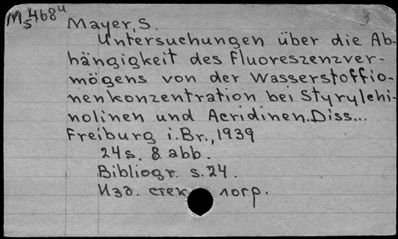 M5 4684
Mayer, S.
Untersuchungen über die Ab-
hängigkeit des Fluoreszenzver-
mögens von der Wasserstoffio-
nenkonzentration bei Styrylchi-
nolinen und Acridinen. Diss...
Freiburg i. Br., 1939
24s. 8 abb.
Bibliogr. s. 24.
Изд. стек логр.